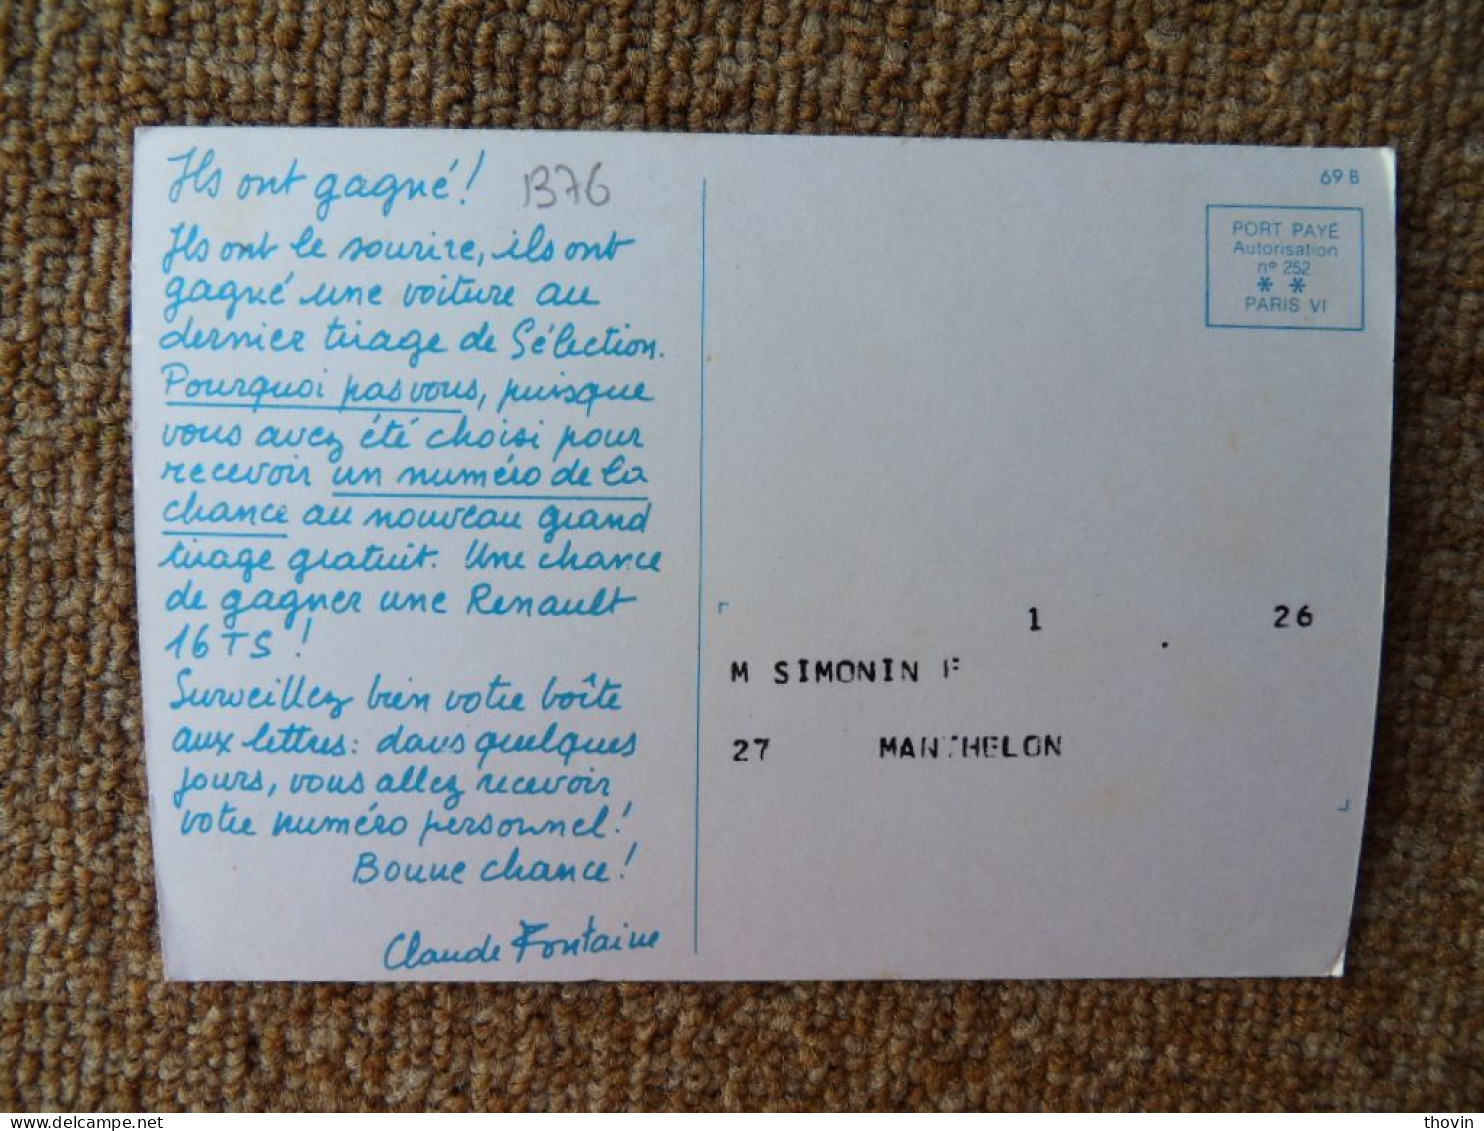 Ils ont gagné!
B76
Ils ont le sourire, ils ont
gagné une voiture au
dernier tirage de Sélection.
Pourquoi pas vous, puisque
vous avez été choisi pour
recevoir un numéro de la
chance au nouveau grand
tirage gratuit. Une chance
de gagner une Renault
16 TS!
Surveillez bien votre boîte
aux lettres: dans quelques
jours, vous allez recevoir
votre numéro personnel!
Bonne chance!
Claude Fontaine
69 B
PORT PAYÉ
Autorisation
nº 252
* *
PARIS VI
1 26
M SIMONIN F
27 MANTHELON
thovin